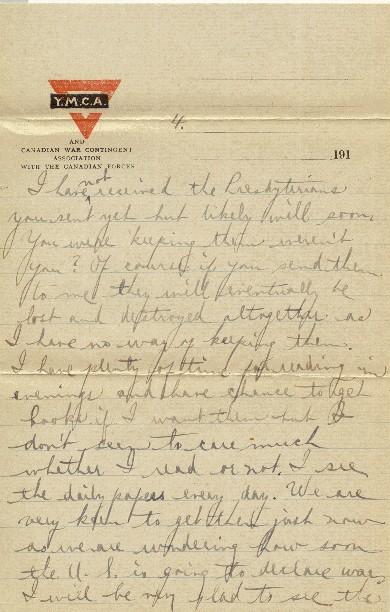 Y.M.C.A.
AND
CANADIAN WAR CONTINGENT
ASSOCIATION
WITH THE CANADIAN FORCES
4.
191
I have not received the Presbyterians
you sent yet but likely will soon.
You were keeping them weren't
you? Of course if you send them
to me they will eventually be
lost and destroyed altogether as
I have no way of keeping them.
I have plenty of time for reading in
evenings and have chance to get
books if I want them but I
don't seem to care much
whether I read or not. I see
the daily papers every day. We are
very keen to get them just now
as we are wondering how soon
the U. S. is going to declare war.
I will be very glad to see the